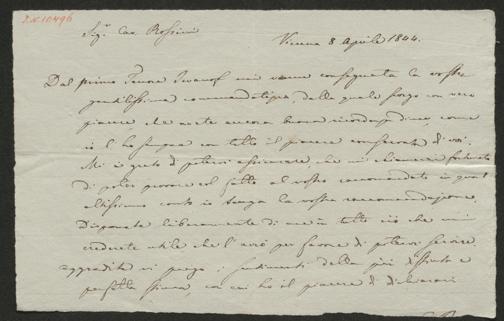 I.N. 10496
Sigr. Cav. Rossini
Vienna 8 Aprile 1844.
Dal primo Tenore Ivanof mi venne consegnata la vostra
gentilissima commendatizia, dalla quale scorgo con vero
piacere che avete ancora buona ricordanza di me, come
io l'ho sempre con tutto il piacere conservata di voi.
Mi è grato di potervi assicurare, che mi chiamerò fortunato
di poter provare col fatto al vostro raccomandato in qual
altissimo conto io tenga la vostra raccomandazione.
Disponete liberamente di me in tutto ciò che mi
crederete utile che l'avrò per favore di potervi servire.
aggradite vi prego i sentimenti della più distinta e
perfetta stima, con cui ho il piacere di dichiararmi